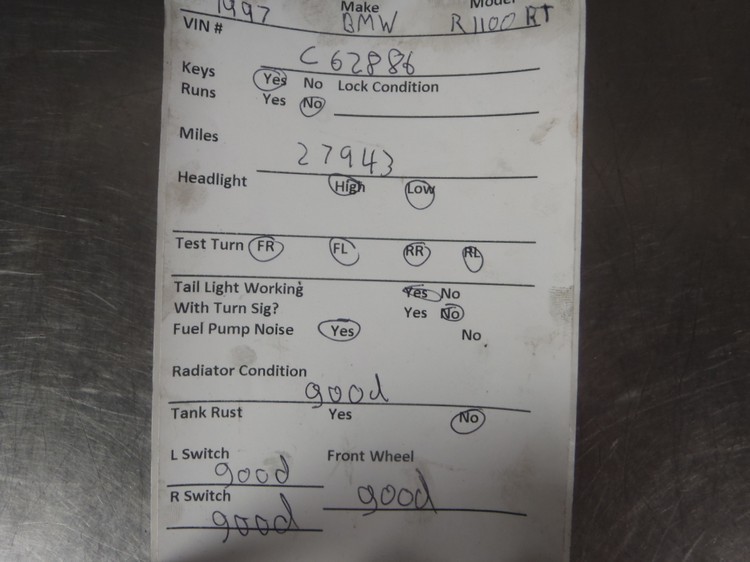 1997 Make BMW Model R1100 RT
VIN # C62886
Keys Yes No Lock Condition
Runs Yes No
Miles 27943
Headlight High Low
Test Turn FR FL RR RL
Tail Light Working Yes No
With Turn Sig? Yes No
Fuel Pump Noise Yes No.
Radiator Condition good
Tank Rust Yes No
L Switch good Front Wheel good
R Switch good